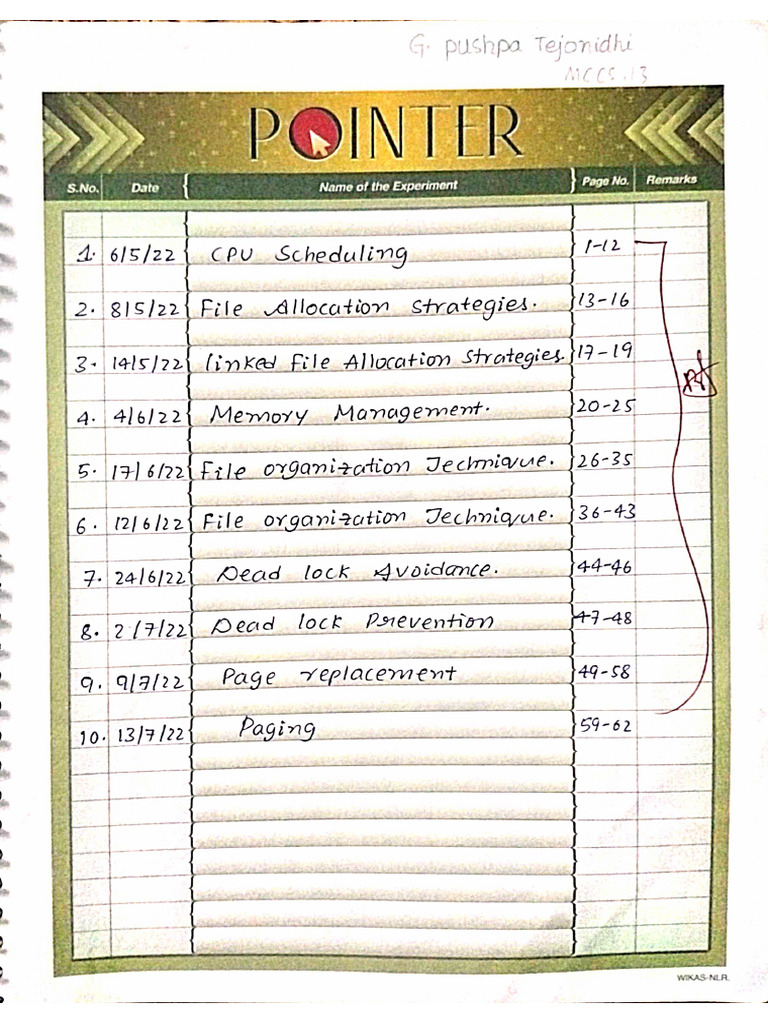 G. pushpa Tejonidhi
MCCS.13
POINTER
S.No. Date Name of the Experiment Page No. Remarks
1. 6/5/22 CPU Scheduling 1-12
2. 8/5/22 File Allocation strategies. 13-16
3. 14/5/22 linked File Allocation Strategies. 17-19
4. 4/6/22 Memory Management. 20-25
5. 17/6/22 File organization Technique. 26-35
6. 12/6/22 File organization Technique. 36-43
7. 24/6/22 Dead lock Avoidance. 44-46
8. 2/7/22 Dead lock Prevention 47-48
9. 9/7/22 Page replacement 49-58
10. 13/7/22 Paging 59-62
WIKAS-NLR.